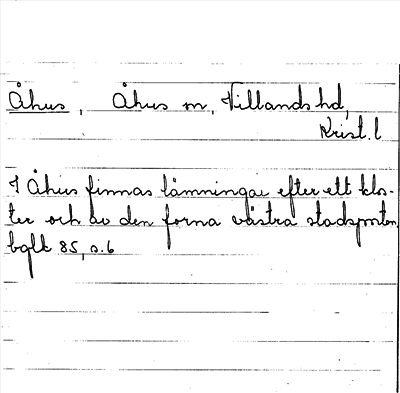 Åhus, Åhus m, Villands hd,
Krist. l
I Åhus finnas lämningar efter ett klo-
ster och av den forna västra stadsporten,
bglk 85, s. 6